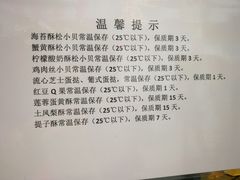 温馨提示
海苔酥松小贝常温保存（25℃以下），保质期3天。
蟹黄酥松小贝常温保存（25℃以下），保质期3天。
柠檬酸奶酥松小贝常温保存（25℃以下），保质期3天。
鸡肉丝小贝常温保存（25℃以下），保质期3天。
流心芝士蛋挞、葡式蛋挞，常温保存（25℃以下），保质期1天。
红豆Q果常温保存（25℃以下），保质期1天。
莲蓉蛋黄酥常温保存（25℃以下），保质期15天。
土凤梨酥常温保存（25℃以下），保质期15天。
提子酥常温保存（25℃以下），保质期7天。